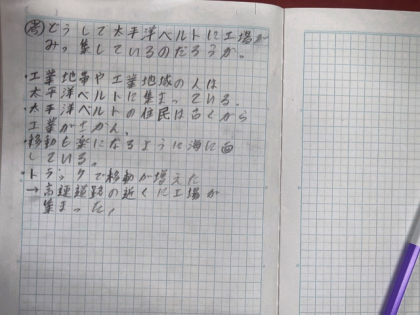 考 どうして太平洋ベルトに工場が
みっ集しているのだろうか。
・工業地帯や工業地域の人は
太平洋ベルトに集まっている。
・太平洋ベルトの住民は古くから
工業がさかん。
・移動も楽になるように海に面
している。
・トラックで移動が増えた
→高速道路の近くに工場が
集まった。